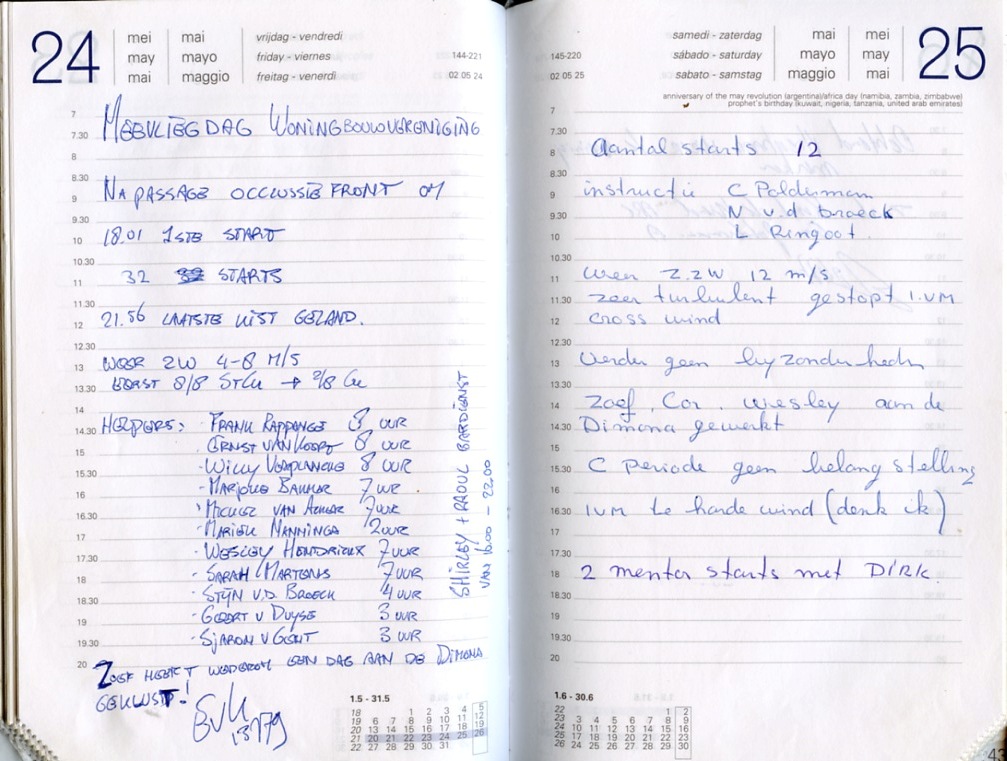 24
mei mai vrijdag - vendredi
may mayo friday - viernes 144-221
mai maggio freitag - venerdi 02 05 24
7
7.30 MEEVLIEGDAG WONINGBOUWVERENIGING
8
8.30
9 NA PASSAGE OCCLUSSIE FRONT OM
9.30
10 18.01 1STE START
10.30
11 32 STARTS
11.30
12 21.56 LAATSTE KIST GELAND.
12.30
13 WEER ZW 4-8 M/S
13.30 EERST 8/8 StCu → 2/8 Cu
14
14.30 HELPERS: - FRANK RAPPANGE 8 UUR
15 - ERNST VAN KOORT 8 UUR
15.30 - WILLY VERPLANCKE 8 UUR
16 - MARJOKE BAKKER 7 UUR
16.30 - MICHIEL VAN ACKER 7 UUR
17 - MARIEK MANNINGA 2 UUR
17.30 - WESLEY HENDRIKX 7 UUR
18 - SARAH MARTENS 7 UUR
18.30 - STIJN V.D. BROECK 4 UUR
19 - GEERT V DUYSE 3 UUR
19.30 - SJARON V GENT 3 UUR
SHIRLEY + RAOUL BARDIENST
VAN 16.00 - 22.00
20 ZOEF HEEFT WEDEROM EEN DAG AAN DE DIMONA
GEKLUST!
1.5 - 31.5
18 1 2 3 4 5
19 6 7 8 9 10 11 12
20 13 14 15 16 17 18 19
21 20 21 22 23 24 25 26
22 27 28 29 30 31
samedi - zaterdag mai mei 25
sábado - saturday mayo may
sabato - samstag maggio mai
145-220
02 05 25
anniversary of the may revolution (argentina)/africa day (namibia, zambia, zimbabwe)
prophet's birthday (kuwait, nigeria, tanzania, united arab emirates)
7
7.30
8 Aantal starts 12
8.30
9 instructie C Polderman
9.30 N v.d broeck
10 L Ringoot.
10.30
11 weer Z.ZW 12 m/s
11.30 zeer turbulent gestopt i.v.m
12 cross wind
12.30
13 Verder geen byzonderheden
13.30
14 Zoef, Cor, Wesley aan de
14.30 Dimona gewerkt
15
15.30 C periode geen belangstelling
16
16.30 IVM te harde wind (denk ik)
17
17.30
18 2 mentor starts met DIRK.
18.30
19
19.30
20
1.6 - 30.6
22 1 2
23 3 4 5 6 7 8 9
24 10 11 12 13 14 15 16
25 17 18 19 20 21 22 23
26 24 25 26 27 28 29 30